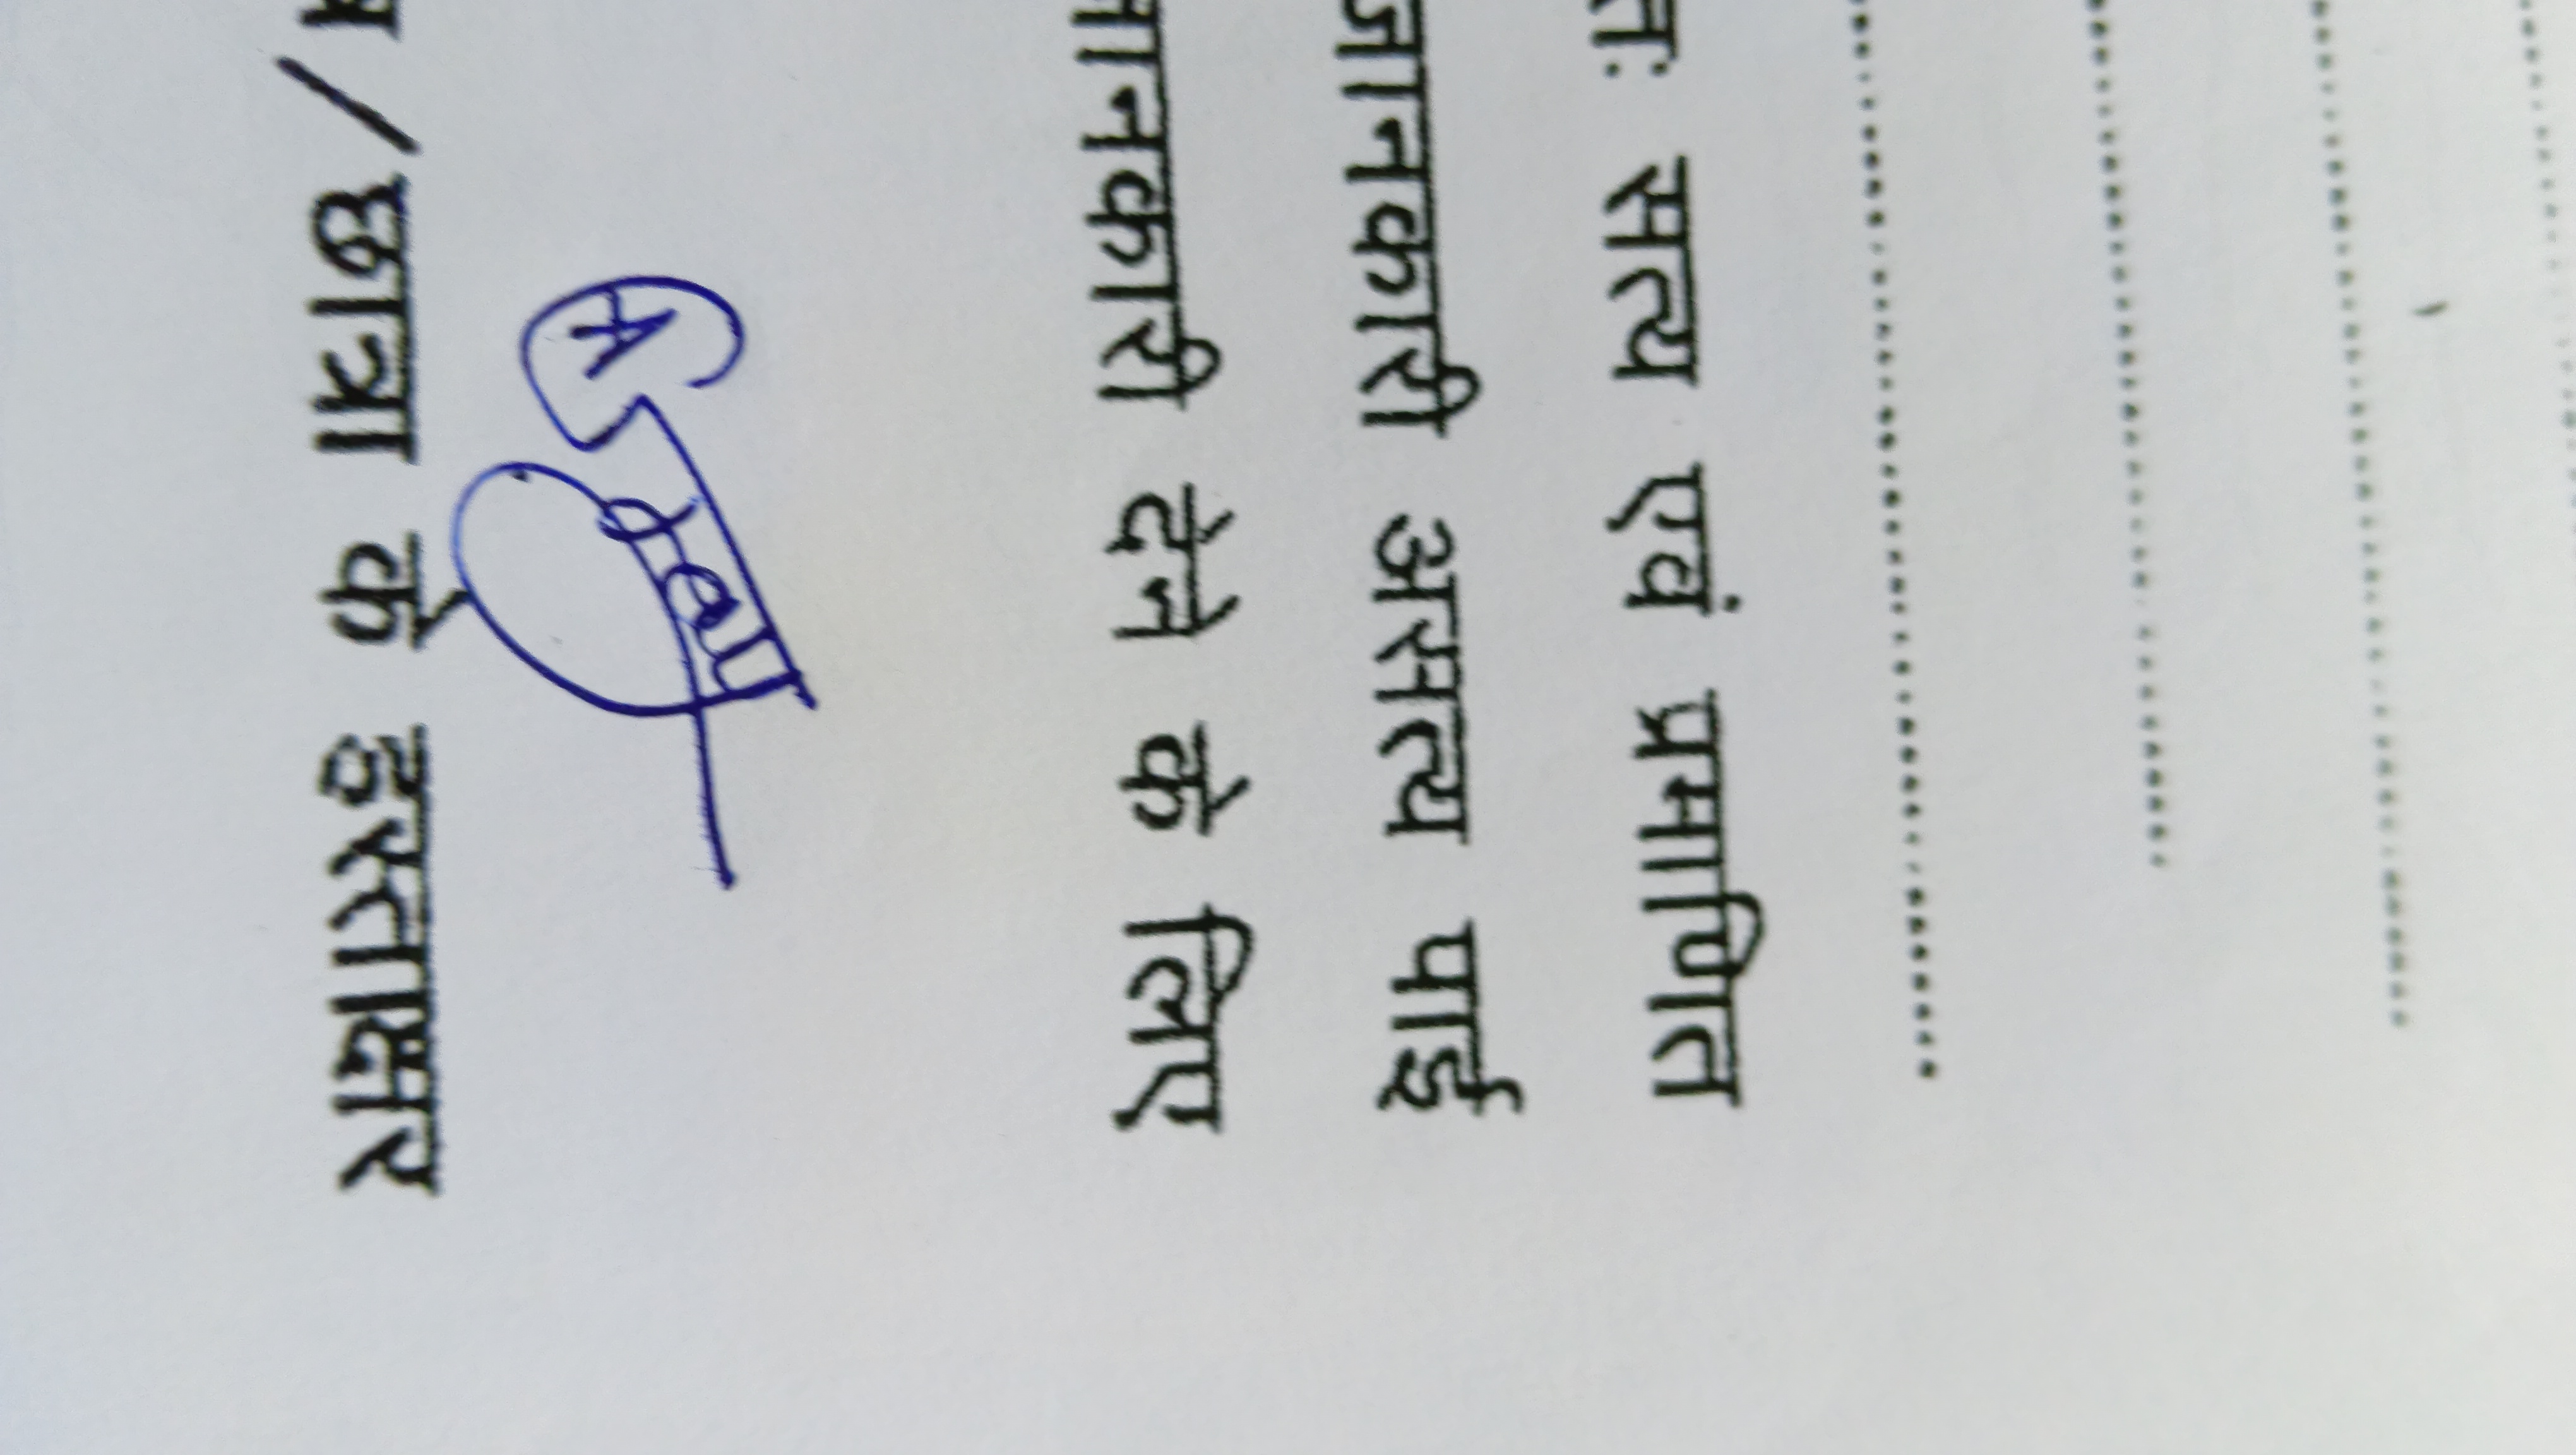 तः सत्य एवं प्रमाणित
जानकारी असत्य पाई
जानकारी देने के लिए
/ छात्रा के हस्ताक्षर